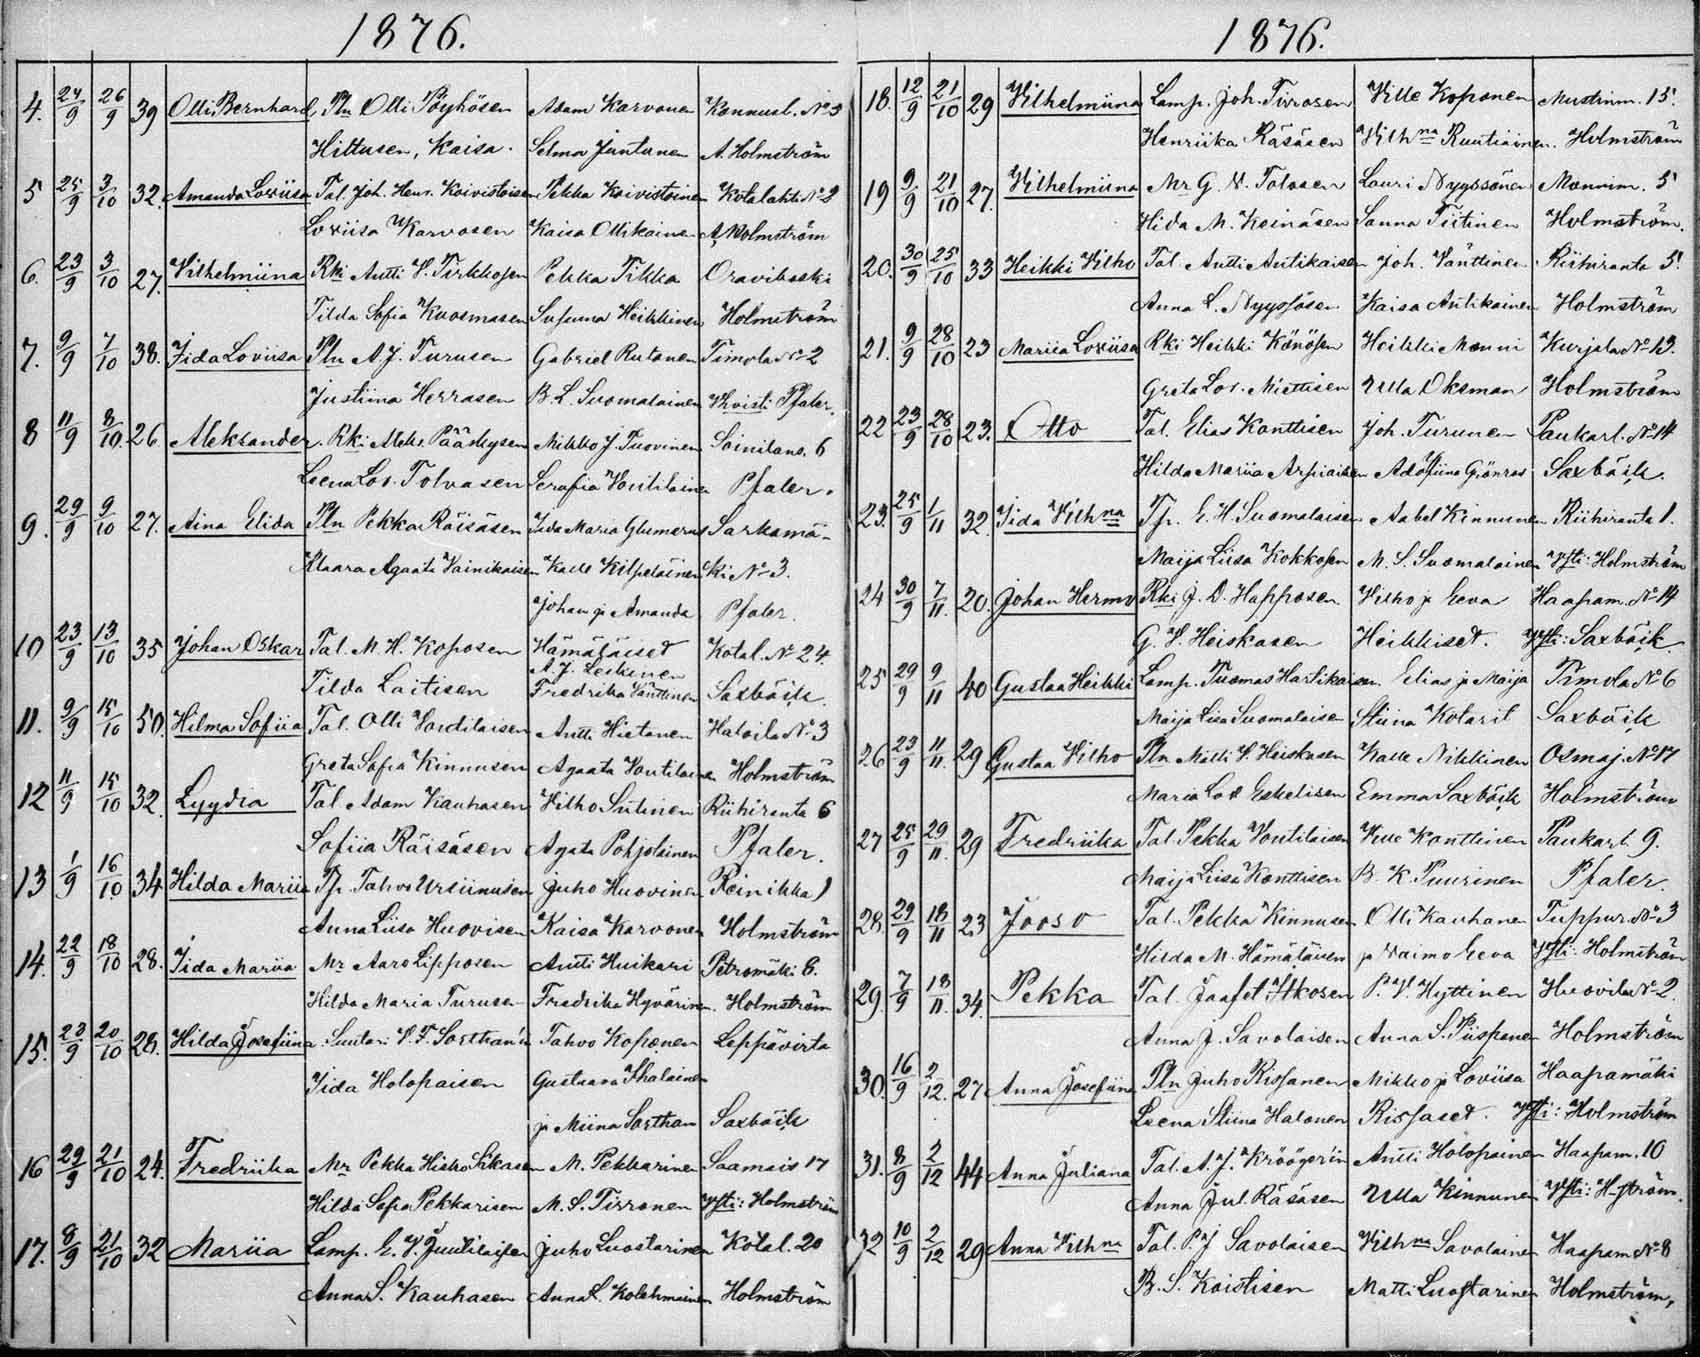 1876.
4. 24/9 26/9 39 Olli Bernhard, Pln Olli Pöyhösen Adam Karvonen Konnusl. No 3
Hittusen, Kaisa. Selma Juntunen A. Holmström
5 25/9 3/10 32. Amanda Loviisa Tal. Joh. Henr. Koivistoisen Pekka Koivistoinen Kotalahti No 2
Loviisa Karvosen Kaisa Ollikainen A. Holmström
6. 23/9 3/10 27. Vilhelmiina Rki Antti V. Tirkkosen Pekka Tikka Oravikoski
Tilda Sofia Kuosmasen Susanna Heikkinen Holmström
7. 9/9 7/10 38. Iida Loviisa Pln A. J. Turusen Gabriel Rutanen Timola No 2
Justiina Herrasen B. L. Suomalainen Pfaler.
8 11/9 8/10. 26. Aleksander. Rki Aleks. Pääskysen Mikko J. Tuovinen Soinilans. 6
Leena Lov. Tolvasen Serafia Voutilainen Pfaler.
9. 29/9 9/10 27. Aina Elida Pln Pekka Räisäsen Iida Maria Glumerus Sarkamä-
Klaara Agaata Vainikaisen Kalle Kilpeläinen ki No 3.
Johan ja Amanda Pfaler.
10 23/9 13/10 35 Johan Oskar Tal. M. H. Koposen Hämäläiset Kotal. No 24.
A. J. Leskinen
Tilda Laitisen Fredrika Vänttinen Saxbäck.
11. 9/9 15/10 50. Hilma Sofiia Tal. Olli Voutilaisen Antti Hietanen Hatoila No 3
Greta Sofia Kinnusen Agaata Voutilainen Holmström
12 11/9 15/10 32. Lyydia Tal Adam Kauhasen Vilho Siitinen Riihiranta 6
Sofiia Räisäsen Agata Pohjolainen Pfaler.
13 1/9 16/10. 34 Hilda Mariia Tp. Tahvo Ursiinusen Juho Huovinen Reinikka 1
Anna Liisa Huovisen Kaisa Karvonen Holmström
14. 22/9 18/10 28. Iida Mariia Mr Aaro Lipposen Antti Huikari Petromäki 6.
Hilda Maria Turusen Fredrika Hyvärinen. Holmström
15. 23/9 20/10 28. Hilda Josefiina. Suutari V. F. Sorthan'in Tahvo Koponen Leppävirta
Iida Holopaisen Gustaava Ihalainen
ja Miina Sorthan Saxbäck
16 29/9 21/10 24. Fredriika Mr Pekka Hisko Likasen M. Pekkarinen Saamais 17
Hilda Sofia Pekkarisen M. S. Tirronen Ysti: Holmström
17. 8/9 21/10 32 Mariia Lamp. E. V. Juutilaisen Juho Luostarinen Kotal. 20
Anna S. Kauhasen Anna L. Kolehmainen Holmström
1876.
18. 12/9 21/10 29 Vilhelmiina Lamp. Joh. Tirrosen Ville Koponen Mustinm. 15.
Henriika Räsäsen Vilhna Ruutiainen. Holmström
19 9/9 21/10 27. Vilhelmiina Mr G. V. Tolosen Lauri Nyyssönen Monnim. 5
Hida M. Keinäsen Sanna Tiitinen Holmström.
20. 30/9 25/10 33 Heikki Vilho Tal. Antti Antikaisen Joh. Vänttinen Riihiranta 5.
Anna L. Nyyssösen Kaisa Antikainen Holmström
21. 9/9 28/10 23 Mariia Loviisa Rki Heikki Könösen Heikki Monni Kurjala No 13.
Greta Lov. Miettisen Ulla Oksman Holmström
22 23/9 28/10 23. Otto Tal. Elias Konttisen Joh. Turunen Paukarl. No 14
Hilda Mariia Arpiaisen Adolfiina Grönros Saxbäck.
23. 25/9 1/11 32. Iida Vilhna Tp. E. H. Suomalaisen Aabel Kinnunen Riihiranta 1.
Maija Liisa Kokkosen M. S. Suomalainen Ysti: Holmström
24 30/9 7/11. 20. Johan Hermo Rki J. D. Happosen. Vilho ja Eeva Haapam. No 14
G. V. Heiskasen Heikkiset. Ysti: Saxbäck.
25 29/9 9/11 40 Gustaa Heikki Lamp. Tuomas Hartikaisen. Elias ja Maija Timola No 6
Maija Liisa Suomalaisen Stiina Kotarit Saxbäck
26 23/9 11/11. 29 Gustaa Vilho Pln Matti V. Heiskasen Kalle Nikkinen Osmaj. No 17
Maria Lov Eskelisen Emma Saxbäck Holmström
27 25/9 29/11. 29 Fredriika Tal. Pekka Voutilaisen Ville Konttinen Paukarl. 9.
Maija Liisa Konttisen B. K. Puurinen Pfaler.
28. 29/9 18/11 23 Jooso Tal. Pekka Kinnusen Olli Kauhanen Tuppur. No 3
Hilda M. Hämäläisen ja Vaimo Eeva Ysti: Holmström
29. 7/9 18/11. 34. Pekka Tal. Jaafet Itkosen P. V. Hyttinen Huovila No 2.
Anna J. Savolaisen Anna S. Piispanen Holmström
30. 16/9 2/12. 27 Anna Josefiina Pln Juho Rissanen Mikko ja Loviisa Haapamäki
Leena Stiina Halonen Rissaset. Ysti: Holmström
31. 8/9 2/12 44 Anna Juliana Tal. A. J. Kröögerin Antti Holopainen Haapam. 10
Anna Jul. Räsäsen Ulla Kinnunen Ysti: H-ström.
32 10/9 2/12 29 Anna Vilhna Tal. P. J Savolaisen Vilhna Savolainen Haapam No 8
B. S. Koistisen Matti Luostarinen Holmström,